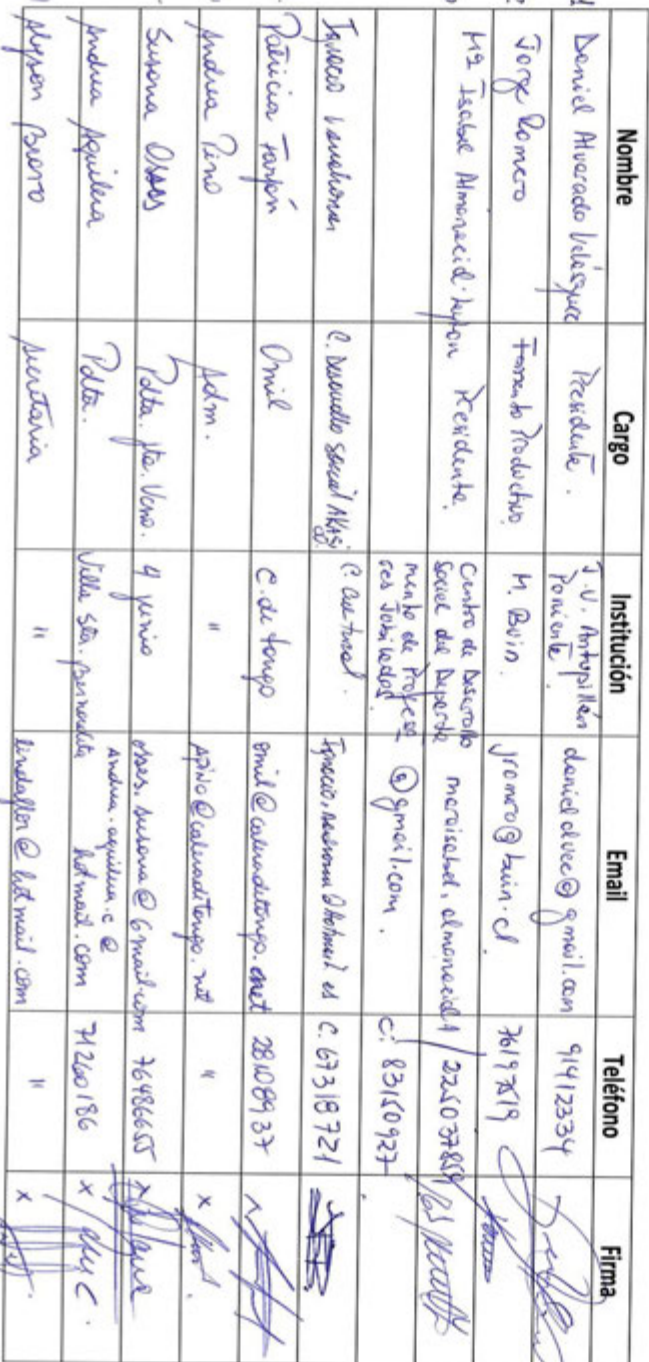 Nombre Cargo Institución Email Teléfono Firma
Daniel Alvarado Velásquez Presidente. J.V. Antupillán Poniente. danielalvee@gmail.com 91412334
Jorge Romero Fomento Productivo. M. Buin. jromero@buin.cl 76197519
Mª Isabel Almonacid Leyton Presidenta. Centro de Desarrollo
Social del Departa
mento de Profeso
res Jubilados. mariaisabel.almonacid1
@gmail.com. 225037859
c: 83150927
Ignacio C. Desarrollo social C. Cultural. C. 67318721
Patricia Farfán Omil C. de tango omil@caleradetango.net 28108937
Andrea Pino Adm. " apino@caleradetango.net "
Susana Osses Pdta. Jta. Vecno. 4 junio osses.susana@Gmail.com 76486655 x
Andrea Aguilera Pdta. Villa Sta. Bernardita andrea.aguilera.c@
hotmail.com 71260186 x
Alyson Bravo secretaria " lindallon@hotmail.com " x